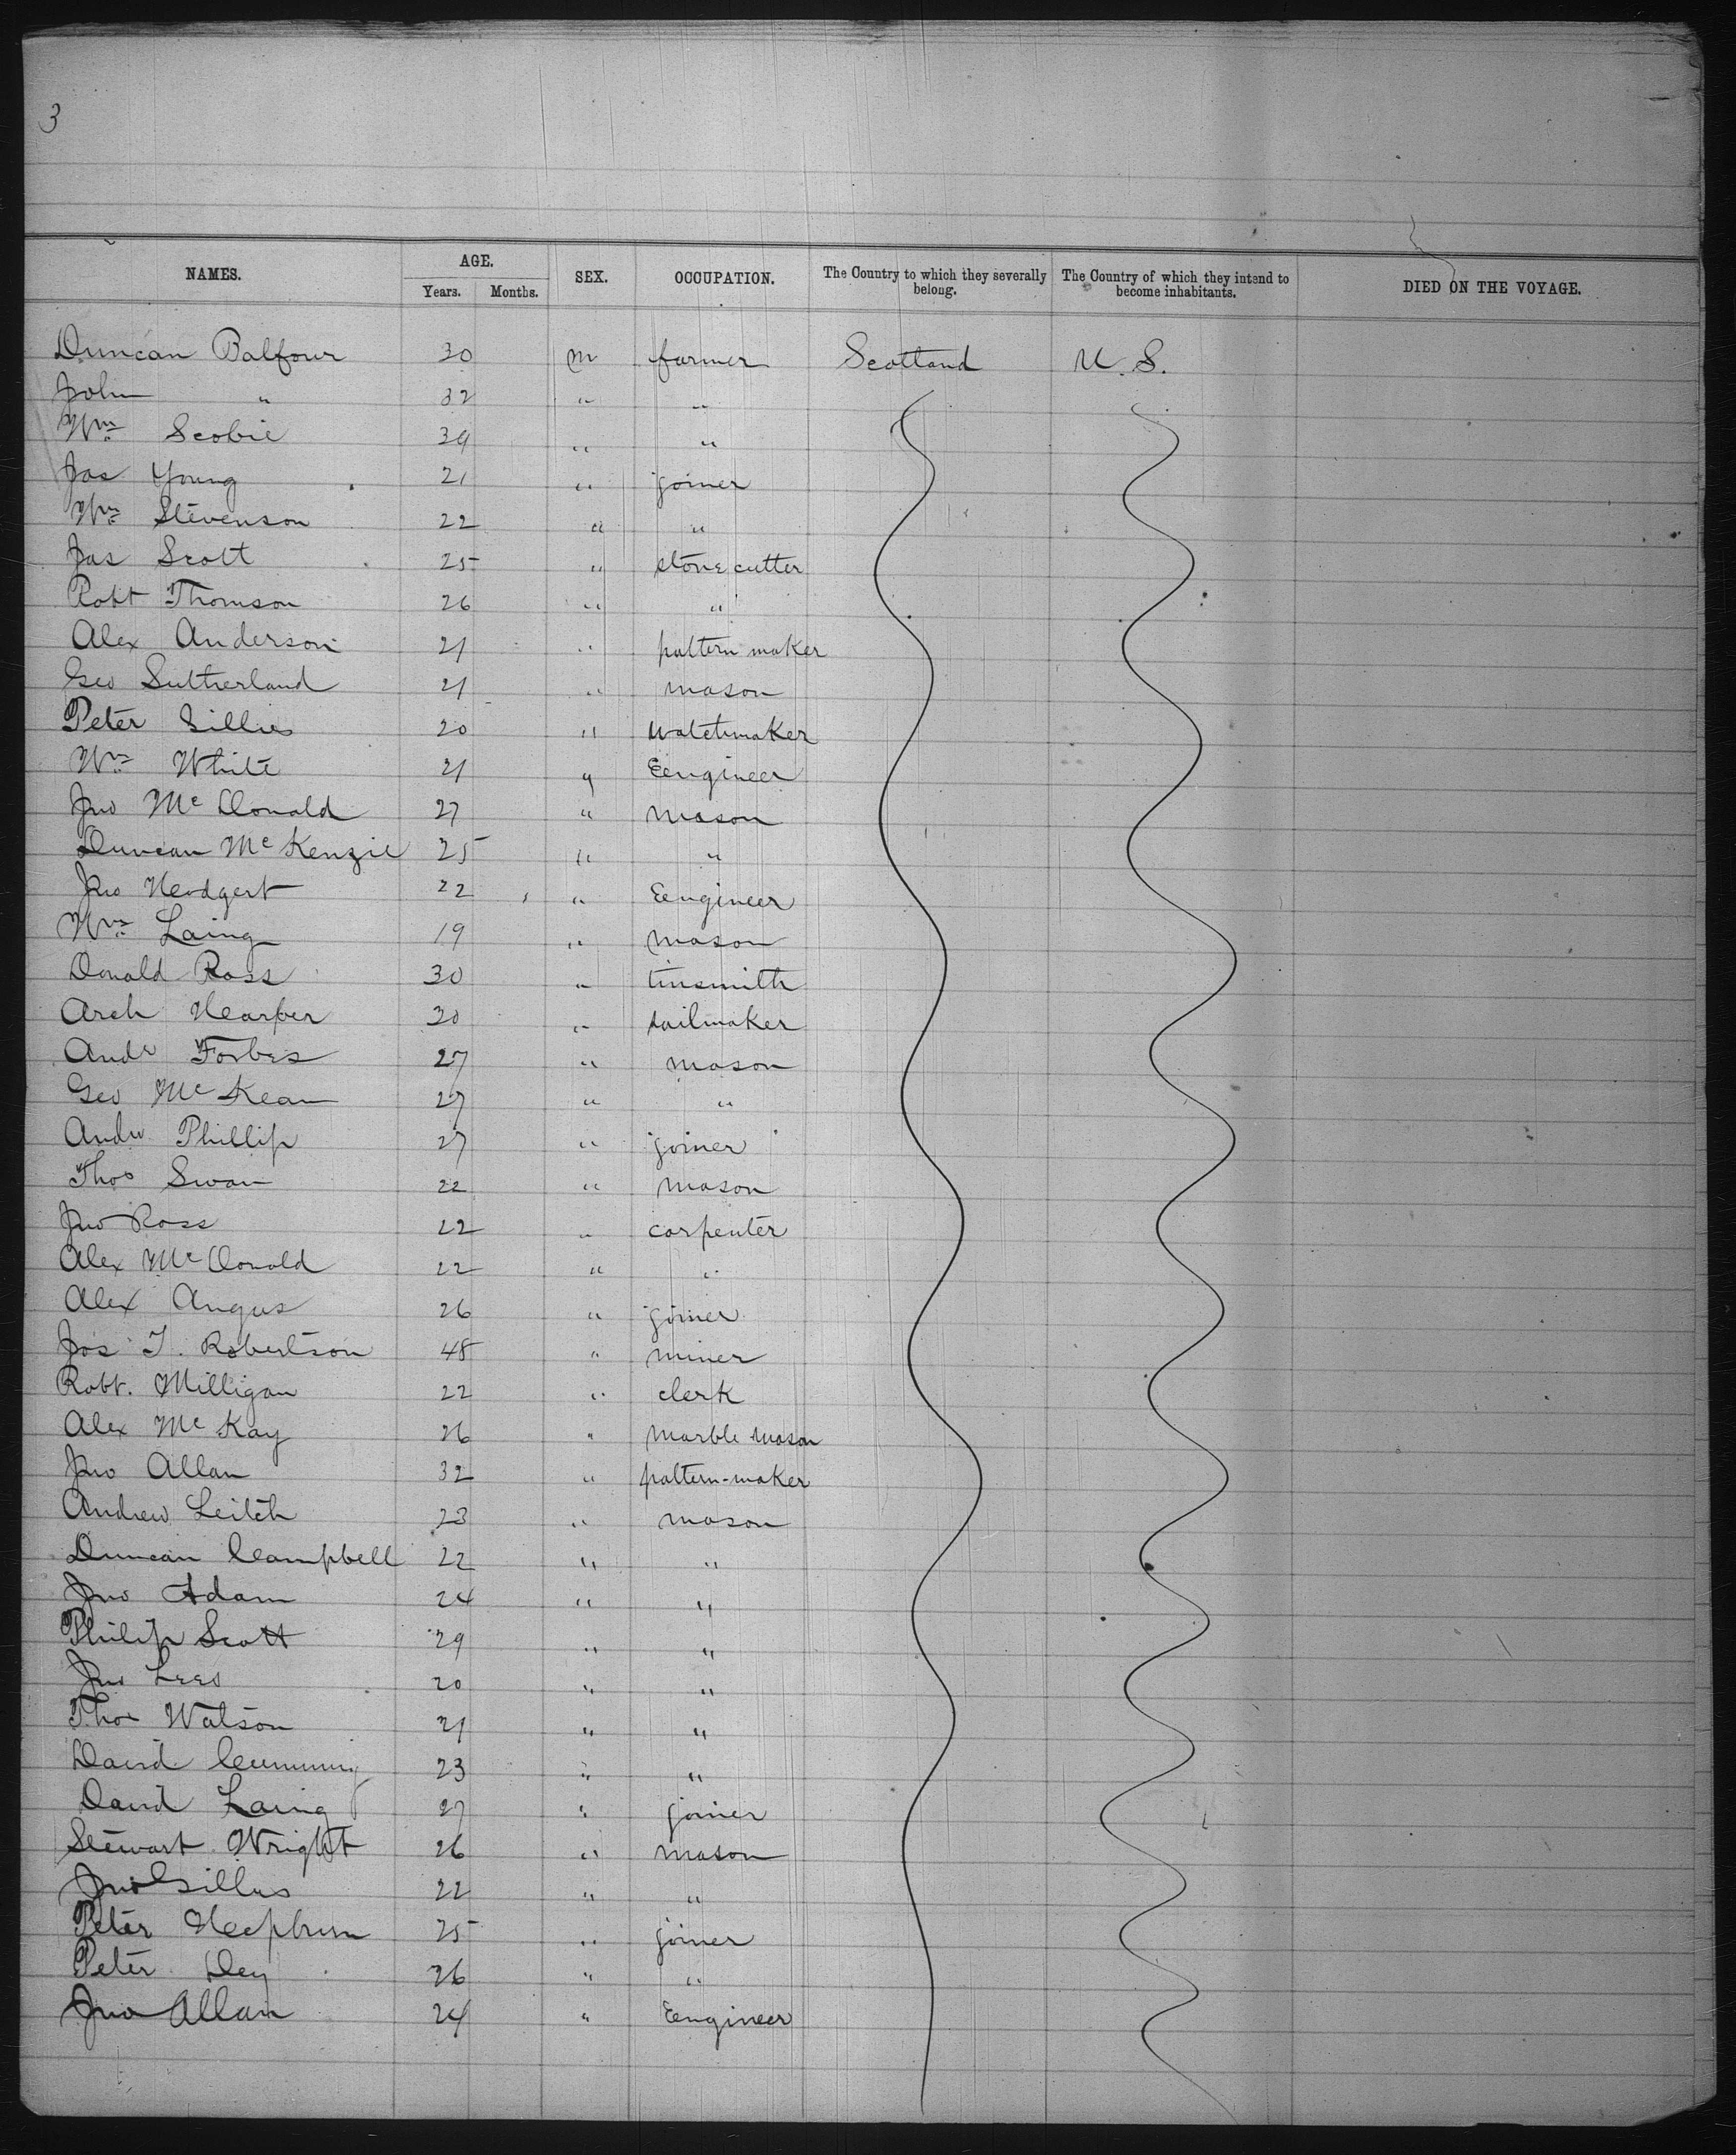 3
NAMES. AGE. SEX. OCCUPATION. The Country to which they severally belong. The Country of which they intend to become inhabitants. DIED ON THE VOYAGE.
Years. Months.
Duncan Balfour 30 m farmer Scotland U.S.
John " 32 " "
Wm Scobie 39 " "
Jas Young 21 " joiner
Wm Stevenson 22 " "
Jas Scott 25 " stone cutter
Robt Thomson 26 " "
Alex Anderson 21 " pattern maker
Geo Sutherland 21 " mason
Peter Gillies 20 " watchmaker
Wm White 21 " Engineer
Jno McDonald 27 " mason
Duncan McKenzie 25 " "
Jno 22 " Engineer
Wm Laing 19 " mason
Donald Ross 30 " tinsmith
Arch Harper 30 " sailmaker
Andw Forbes 27 " mason
Geo McKean 27 " "
Andw Phillip 27 " joiner
Thos Swan 22 " mason
Jno Ross 22 " carpenter
Alex McDonald 22 " "
Alex Angus 26 " joiner
Jos T. Robertson 48 " miner
Robt. Milligan 22 " clerk
Alex McKay 26 " marble mason
Jno Allan 32 " pattern-maker
Andrew Leitch 23 " mason
Duncan Campbell 22 " "
Jno Adam 24 " "
Philip Scott 29 " "
Jno Lees 20 " "
Thos Watson 21 " "
David Cumming 23 " "
David Laing 27 " joiner
Stewart Wright 26 " mason
Jno Gillies 22 " "
Peter Hepburn 25 " joiner
Peter Dey 26 " "
Jno Allan 24 " Engineer